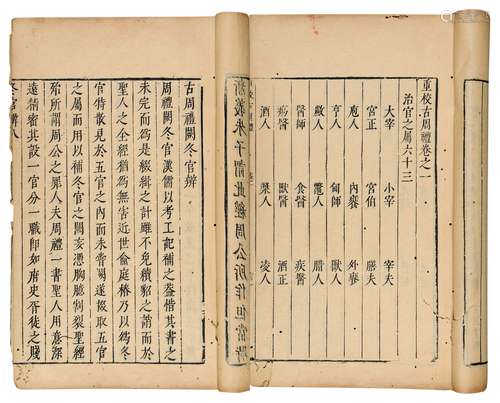 重校古周禮卷之一
治官之屬六十三
大宰 小宰 宰夫
宮正 宮伯 膳夫
庖人 內饔 外饔
亨人 甸師 獸人
鼈人 腊人
醫師 食醫 疾醫
瘍醫 獸醫 酒正
酒人 漿人 凌人
新義朱子謂此經周公所作但當時
古周禮闕冬官辨
周禮闕冬官漢儒以考工記補之蓋惜其書之
未完而為是綴緝之計雖不免續貂之誚而於
聖人之全經猶為無害近世俞庭椿乃以為冬
官特散見於五官之內而未嘗闕遂掇取五官
之屬而以補冬官之闕憑胸臆割裂聖經
殆所謂周公之罪人夫周禮一書聖人用意深
遠精密其設一官分一職即如府史胥徒之賤
冬官辨